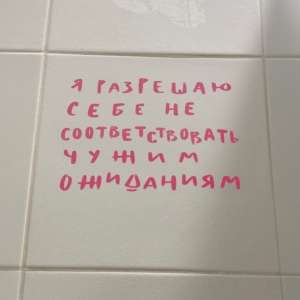 Я РАЗРЕШАЮ
СЕБЕ НЕ
СООТВЕТСТВОВАТЬ
ЧУЖИМ
ОЖИДАНИЯМ